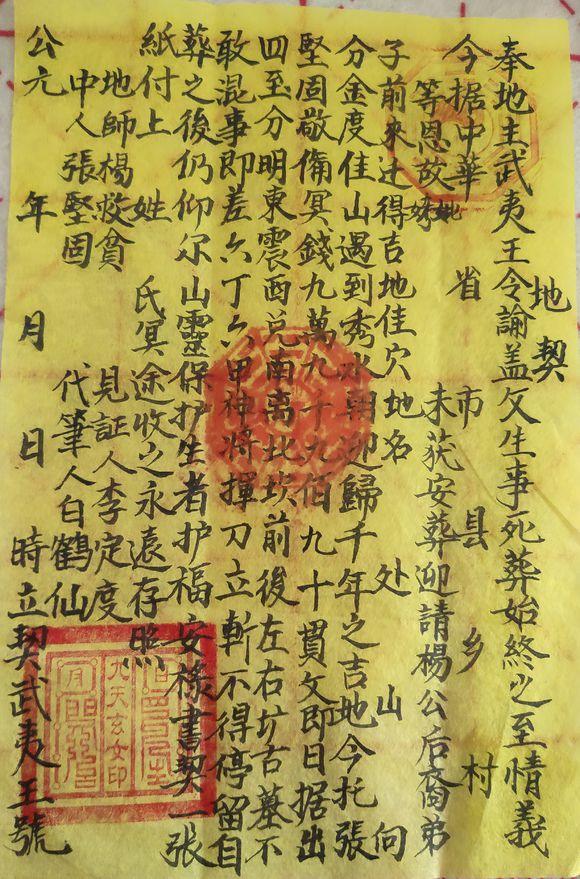 地契
奉地主武夷王令諭盖攵生事死葬始終之至情義
今据中華 省 市 县 乡 村
等恩故 妣 未荻安葬迎請楊公后裔弟
子前來迁得吉地佳穴地名 处 山 向
分金度佳山遇到秀水朝迎歸千年之吉地今托張
堅固敬備冥錢九萬九千九佰九十貫文即日据出
四至分明東震西兑南离北坎前後左右圹古墓不
敢混事即差六丁六甲神將揮刀立斬不得停留自
葬之後仍仰尔山靈保护生者护福安祿書契一張
紙付上 姓 氏冥途收之永遠存照
地師楊救貧 見証人李定度
中人張堅固 代筆人白鶴仙
公元 年 月 日 時立契武夷王號
九天玄女印